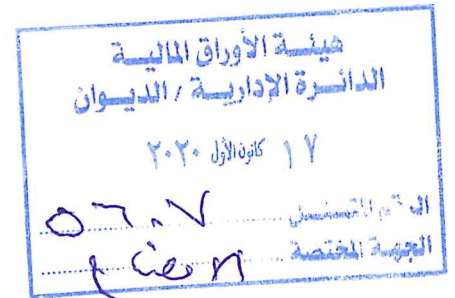 هيئة الأوراق المالية
الدائرة الإدارية / الديوان
١٧ كانون الأول ٢٠٢٠
الرقم المتسلسل ٥٦٠٧
الجهة المختصة